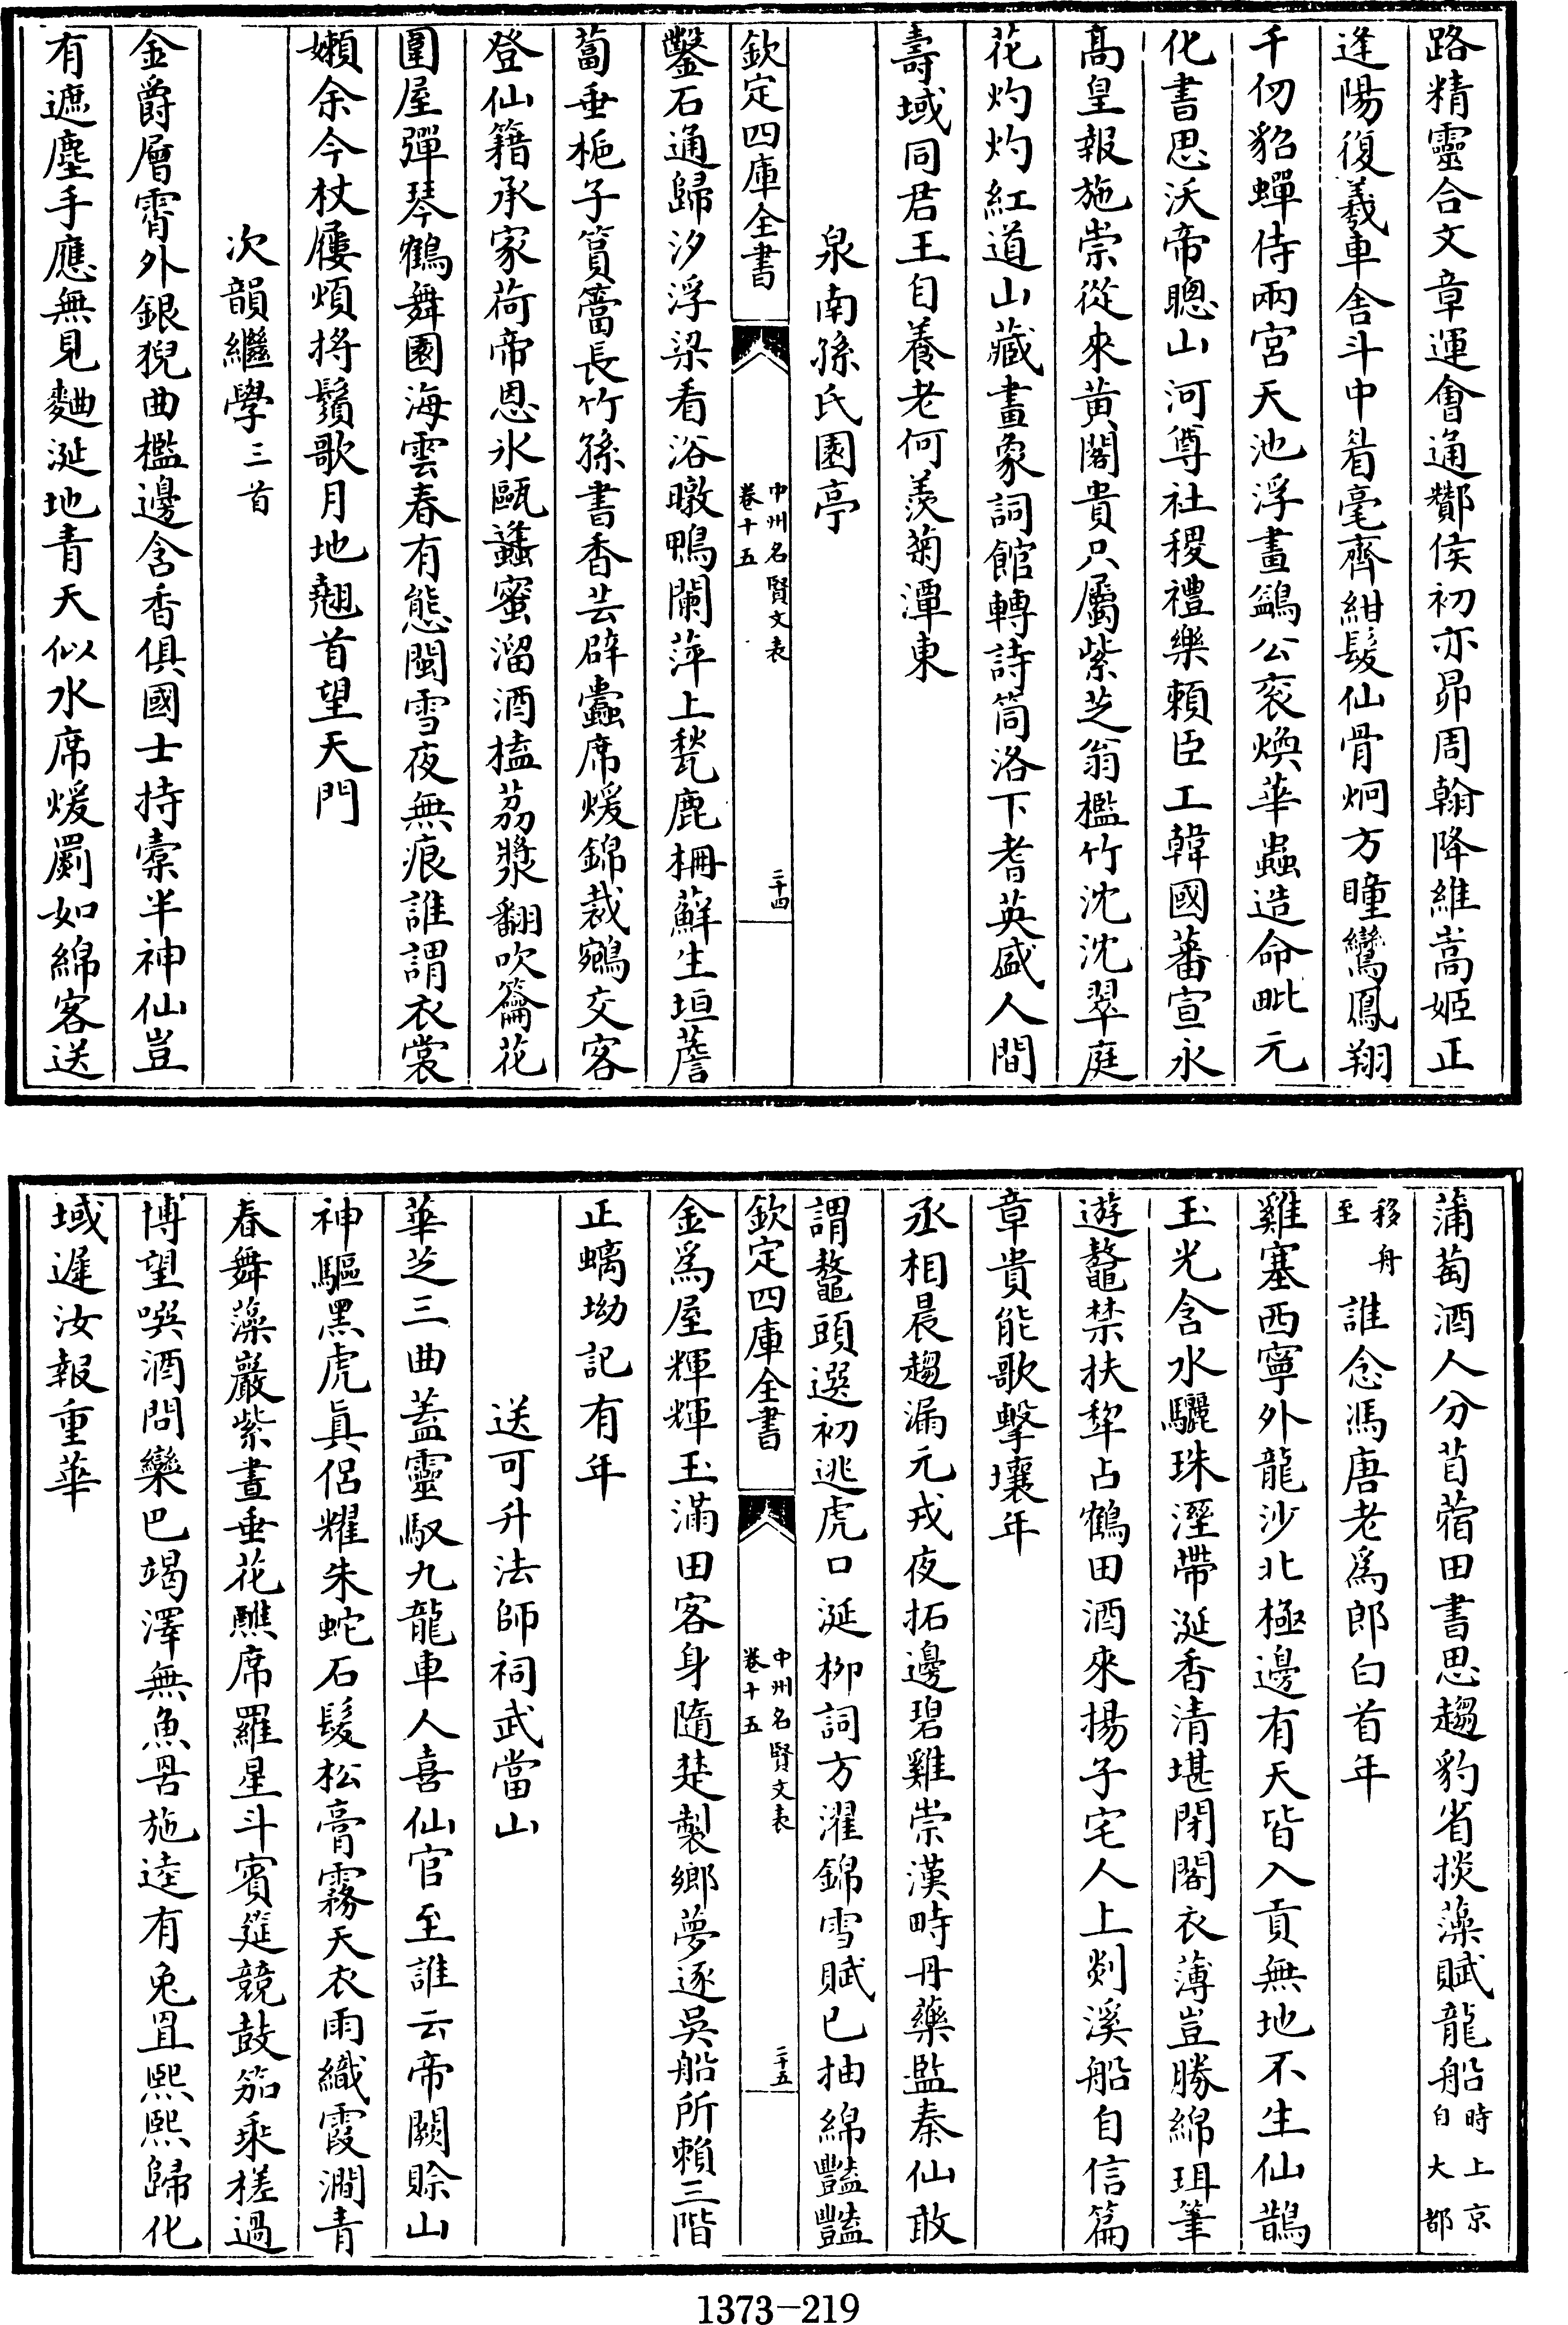 路精靈合文章運會通酇侯初亦昴周翰降維嵩姬正
逢陽復羲車舍斗中眉毫齊紺髮仙骨炯方瞳鸞鳳翔
千仞貂蟬侍兩宮天池浮畫鷁公衮煥華蟲造命毗元
化書思沃帝聰山河尊社稷禮樂賴臣工韓國蕃宣永
髙皇報施崇從來黄閣貴只屬紫芝翁檻竹沈沈翠庭
花灼灼紅道山藏畫象詞館轉詩筒洛下耆英盛人間
壽域同君王自養老何羨菊潭東
泉南孫氏園亭
欽定四庫全書
中州名賢文表
卷十五
二十四
鑿石通歸汐浮梁看浴暾鴨闌萍上甃鹿柵蘚生垣薝
蔔垂梔子篔簹長竹孫書香芸辟蠹席煖錦裁鵷交客
登仙籍承家荷帝恩氷甌蠭蜜溜酒榼荔漿翻吹籥花
圍屋彈琴鶴舞園海雲春有態閩雪夜無痕誰謂衣裳
嬾余今杖屨煩將鬚歌月地翹首望天門
次韻繼學三首
金爵層霄外銀猊曲檻邊含香俱國士持橐半神仙豈
有遮塵手應無見麯涎地青天似水席煖罽如綿客送
蒲萄酒人分苜蓿田書思趨豹省掞藻賦龍船時上京
自大都
移舟
至誰念馮唐老爲郎白首年
雞塞西寧外龍沙北極邊有天皆入貢無地不生仙鵲
玉光含水驪珠溼帶涎香清堪閉閣衣薄豈勝綿珥筆
遊鼇禁扶犂占鶴田酒來揚子宅人上剡溪船自信篇
章貴能歌擊壤年
丞相晨趨漏元戎夜拓邊碧雞崇漢畤丹藥監秦仙敢
謂鼇頭選初逃虎口涎柳詞方濯錦雪賦已抽綿豔豔
欽定四庫全書
中州名賢文表
卷十五
二十五
金爲屋輝輝玉滿田客身隨楚製鄉夢逐吳船所賴三階
正螭坳記有年
送可升法師祠武當山
華芝三曲葢靈馭九龍車人喜仙官至誰云帝闕賒山
神驅黑虎真侶耀朱蛇石髮松膏霧天衣雨織霞澗青
春舞藻巖紫晝垂花醮席羅星斗賓筵競鼓笳乘槎過
博望噀酒問欒巴竭澤無魚罟施逵有兔罝熙熙歸化
域遲汝報重華
1373-219